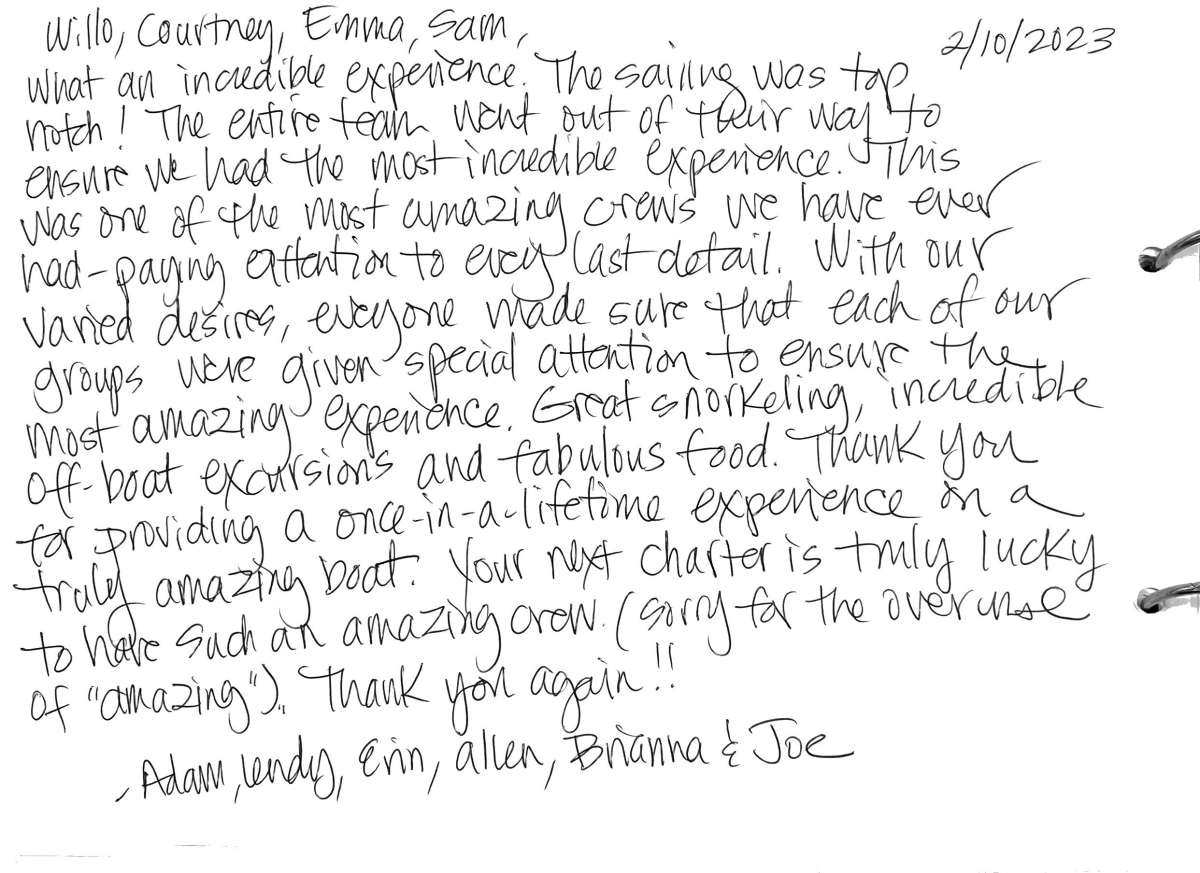 Willo, Courtney, Emma, Sam,
2/10/2023
What an incredible experience. The sailing was top
notch! The entire team went out of their way to
ensure we had the most incredible experience. This
was one of the most amazing crews we have ever
had-paying attention to every last detail. With our
varied desires, everyone made sure that each of our
groups were given special attention to ensure the
most amazing experience. Great snorkeling, incredible
off-boat excursions and fabulous food. Thank you
for providing a once-in-a-lifetime experience on a
truly amazing boat. Your next charter is truly lucky
to have such an amazing crew. (Sorry for the overuse
of "amazing"). Thank you again!!
- Adam, Wendy, Erin, Allen, Brianna & Joe